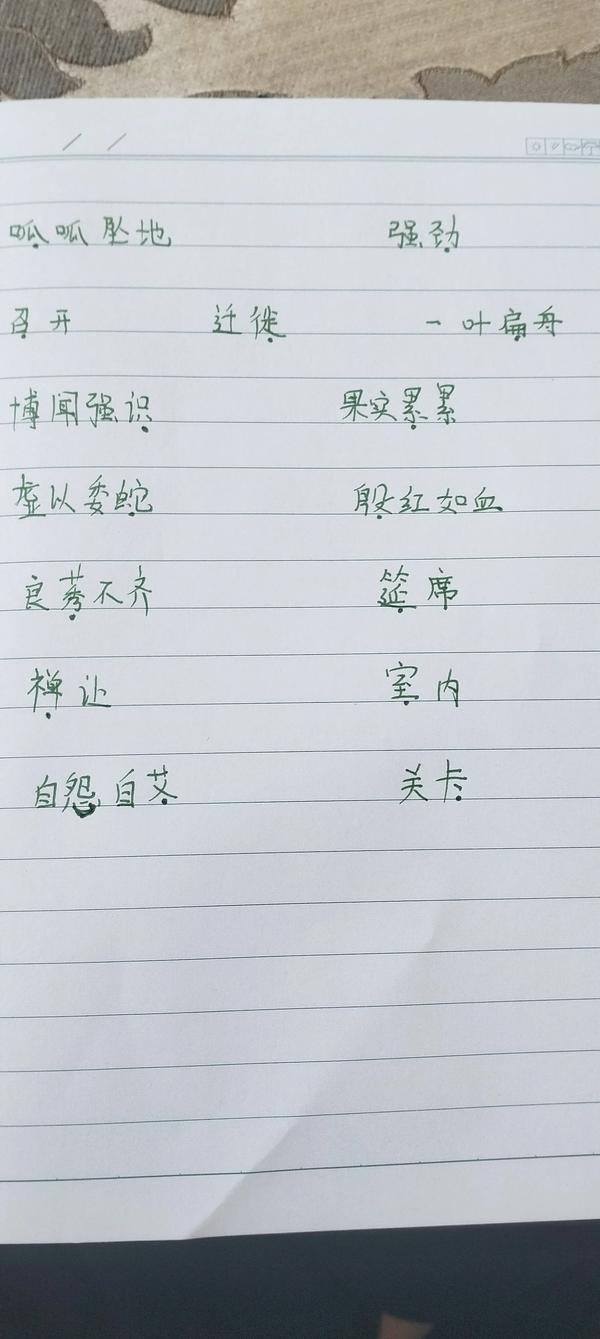 / /
呱呱坠地 强劲
召开 迁徙 一叶扁舟
博闻强识 果实累累
虚以委蛇 殷红如血
良莠不齐 筵席
禅让 室内
自怨自艾 关卡